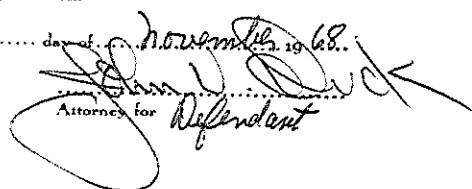 day of November 1968
John V. Duck
Attorney for Defendant